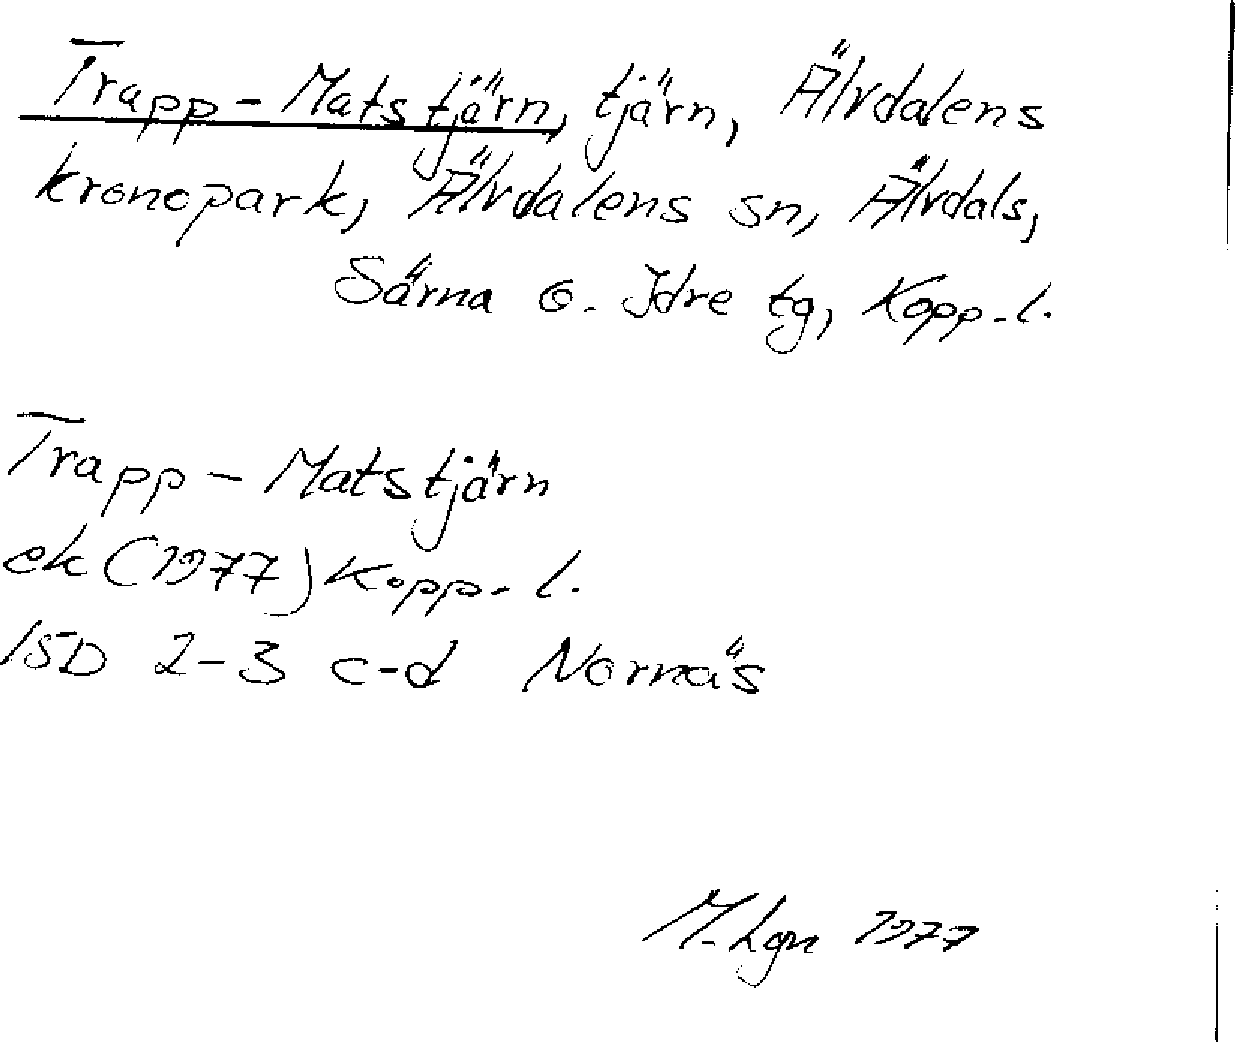 Trapp-Matstjärn, tjärn, Älvdalens
kronopark, Älvdalens sn, Älvdals,
Särna o. Idre tg, Kopp. l.
Trapp-Matstjärn
ek (1977) Kopp. l.
15D 2-3 c-d Nornäs
M. Lgn 1977